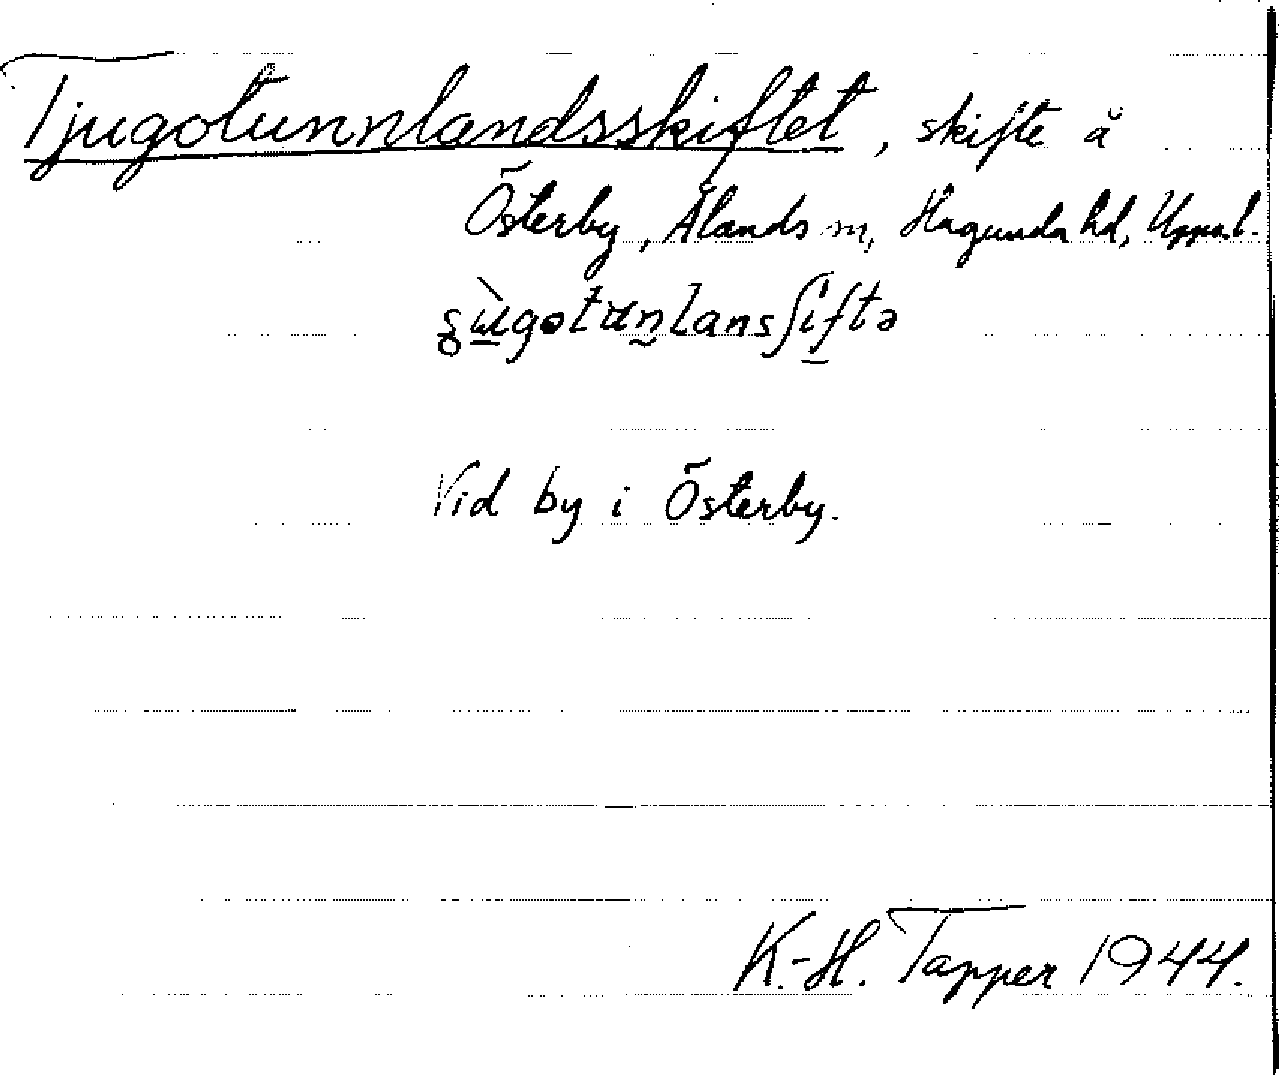 Tjugotunnlandsskiftet, skifte å
Österby, Ålands sn, Hagunda hd, Upps. l.
Vid by i Österby.
K.-H. Tapper 1944.